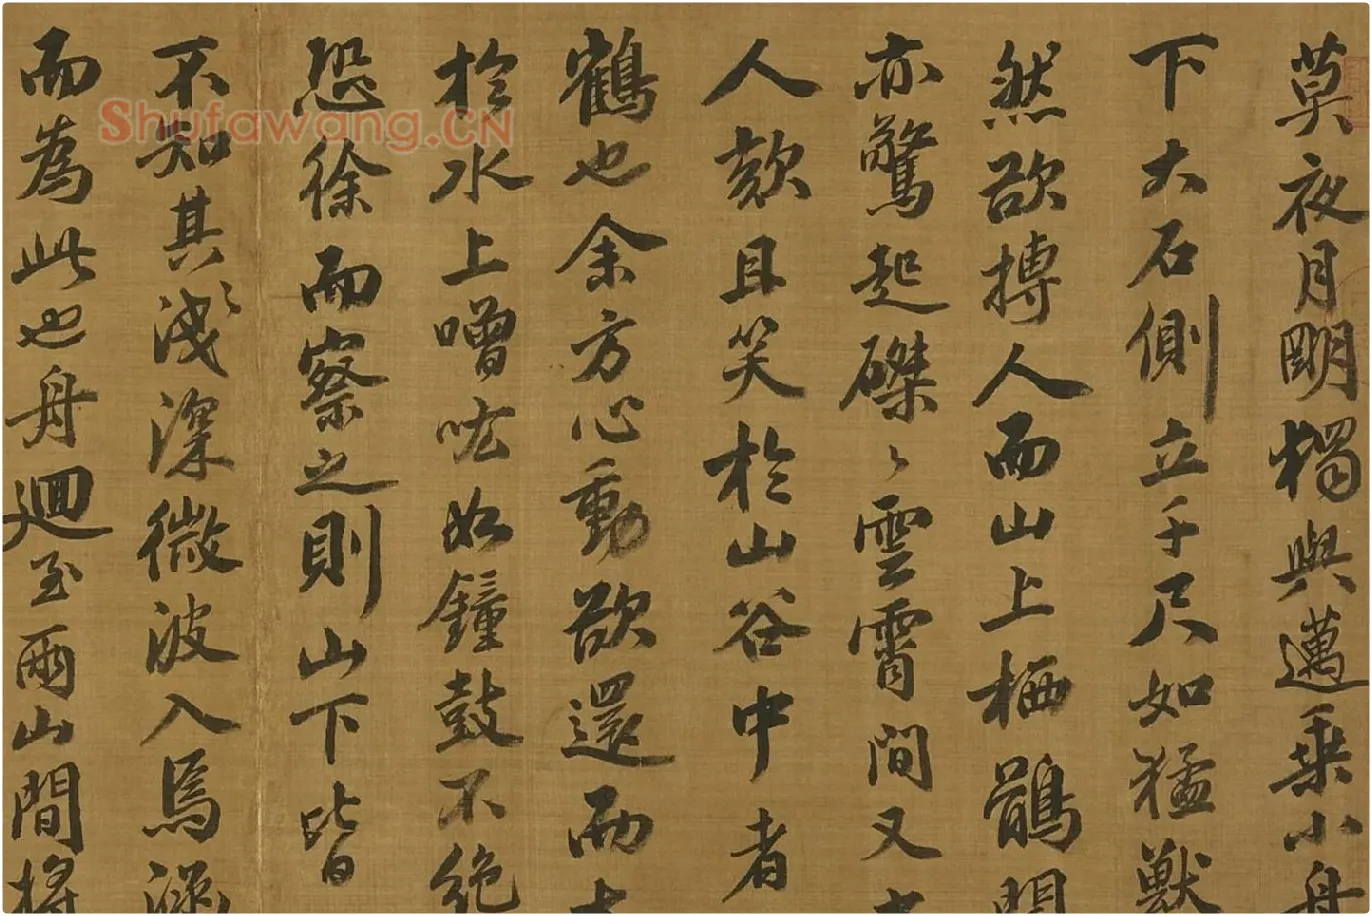 莫夜月明獨與邁乘小舟
下大石側立千尺如猛獸
然欲搏人而山上栖鶻聞
亦驚起磔〻雲霄間又
人欬且笑於山谷中者
鶴也余方心動欲還而大
於水上噌吰如鐘鼓不絕
恐徐而察之則山下皆
不知其淺深微波入焉涵
而為此也舟迴至兩山間將
Shufawang.CN